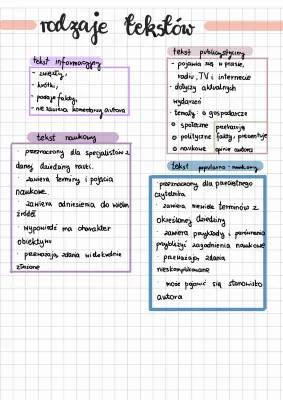 rodzaje tekstów
tekst informacyjny
- zwięzły,
- krótki,
- podaje fakty,
- nie zawiera komentarzy autora
tekst publicystyczny
- pojawia się w prasie,
radiu, TV i internecie
- dotyczy aktualnych
wydarzeń
- tematy: o gospodarcze
o społeczne
o polityczne
o naukowe
przekazują
fakty, prezentuje
opinie autora
tekst naukowy
• przeznaczony dla specjalistów z
danej dziedziny nauki.
• zawiera terminy i pojęcia
naukowe.
• zawiera odniesienia do wielu
źródeł
• wypowiedź ma charakter
obiektywny
• przeważają zdania wielokrotnie
złożone
tekst popularno-naukowy
przeznaczony dla przeciętnego
czytelnika
• zawiera niewiele terminów z
określonej dziedziny
• zawiera przykłady i porównania
przybliżyć zagadnienia naukowe
• przeważają zdania
nieskomplikowane
• może pojawić się stanowisko
autora